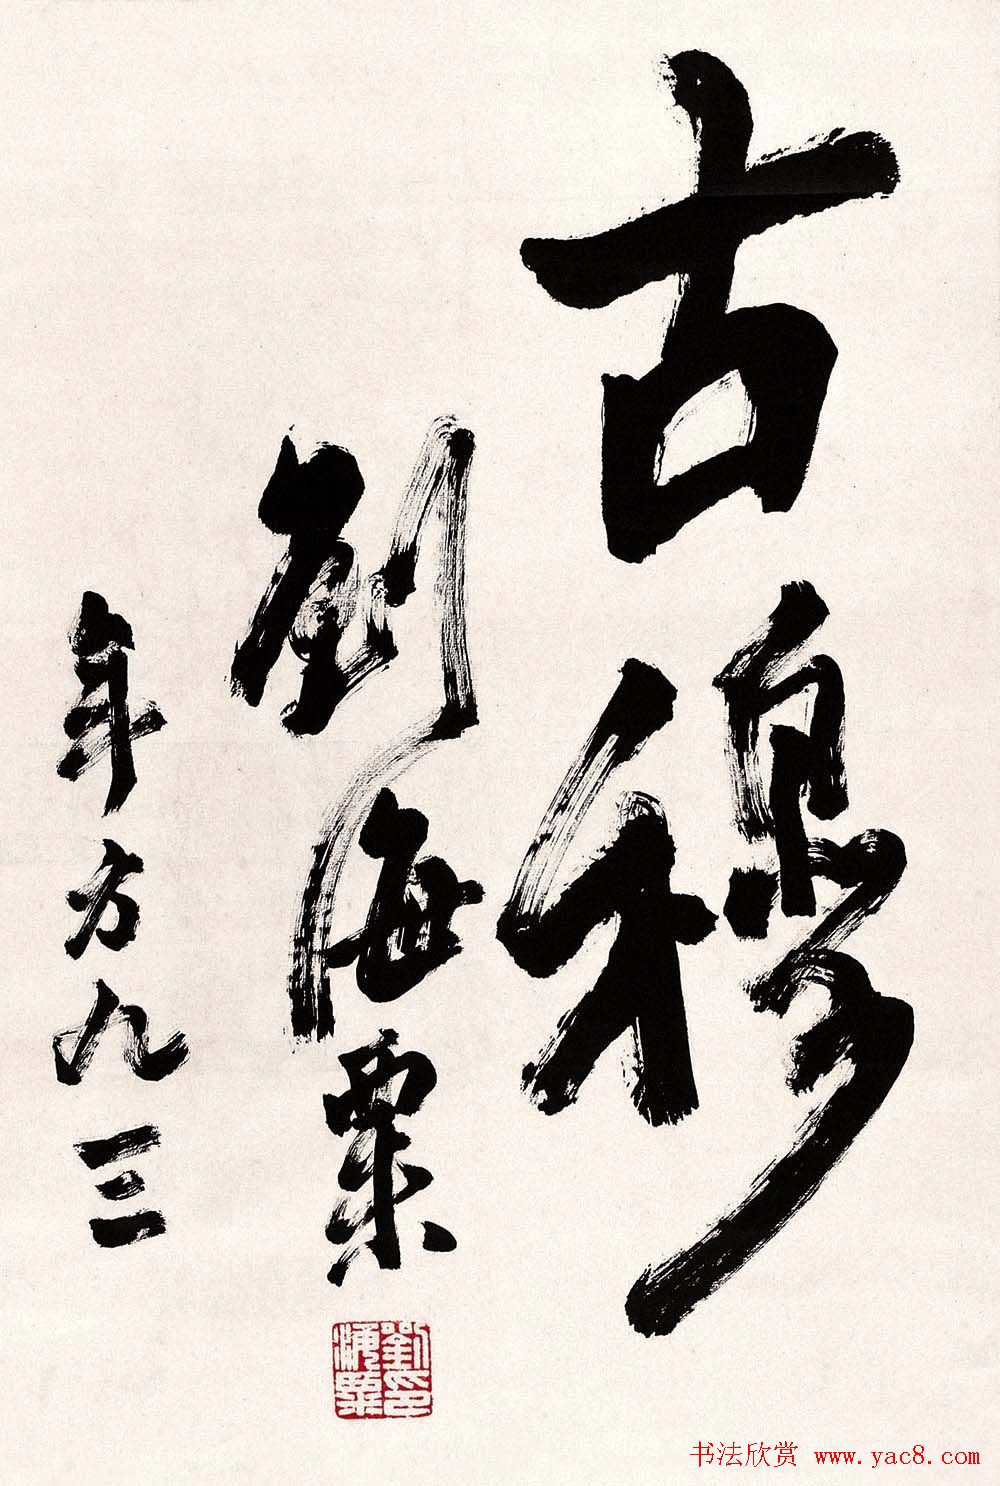 古穆
劉海粟
年方九三
劉印
海粟
书法欣赏 www.yac8.com